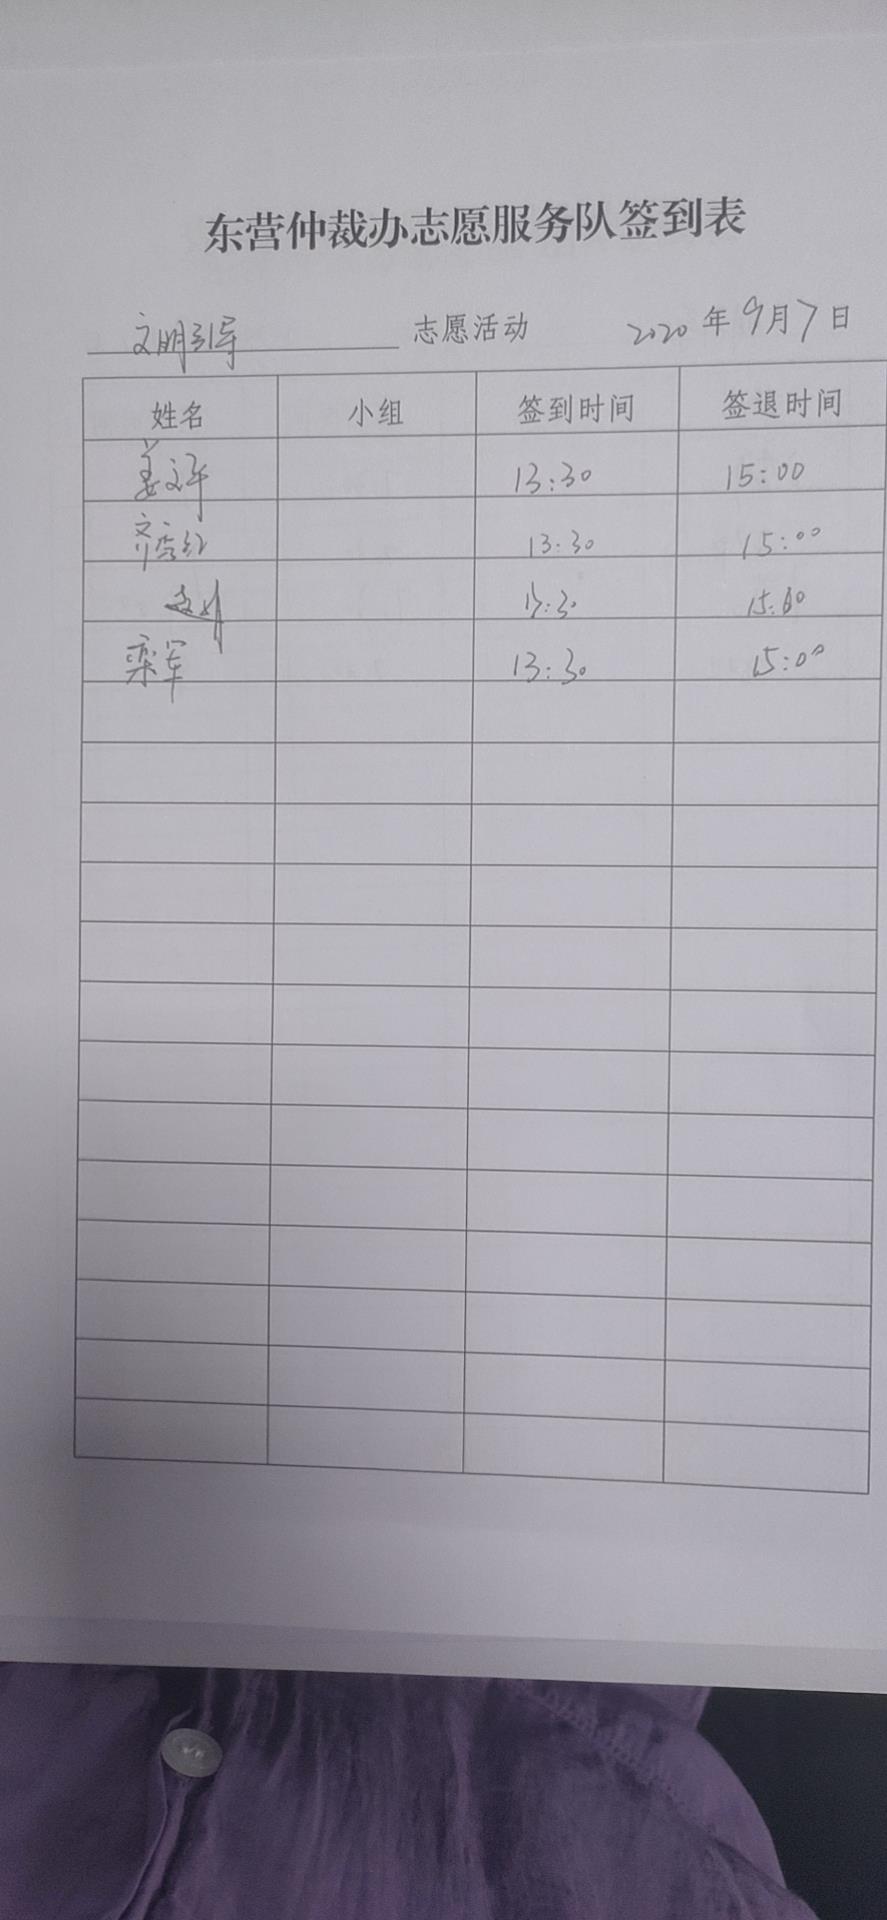 东营仲裁办志愿服务队签到表
文明引导 志愿活动 2020年9月7日
姓名 小组 签到时间 签退时间
姜文华 13:30 15:00
齐秀红 13:30 15:00
13:30 15:00
栾军 13:30 15:00